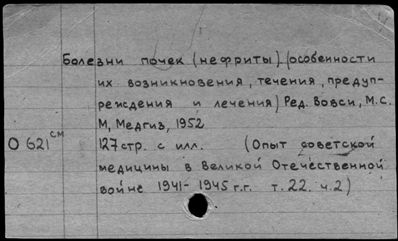 Болезни почек (нефриты). (особенности
их возникновения, течения, предуп-
реждения и лечения) Ред. Вовси, М.С.
М, Медгиз, 1952
О 621 см 127 стр. с илл. (Опыт советской
медицины в Великой Отечественной
войне 1941- 1945 г.г. т. 22. ч. 2)